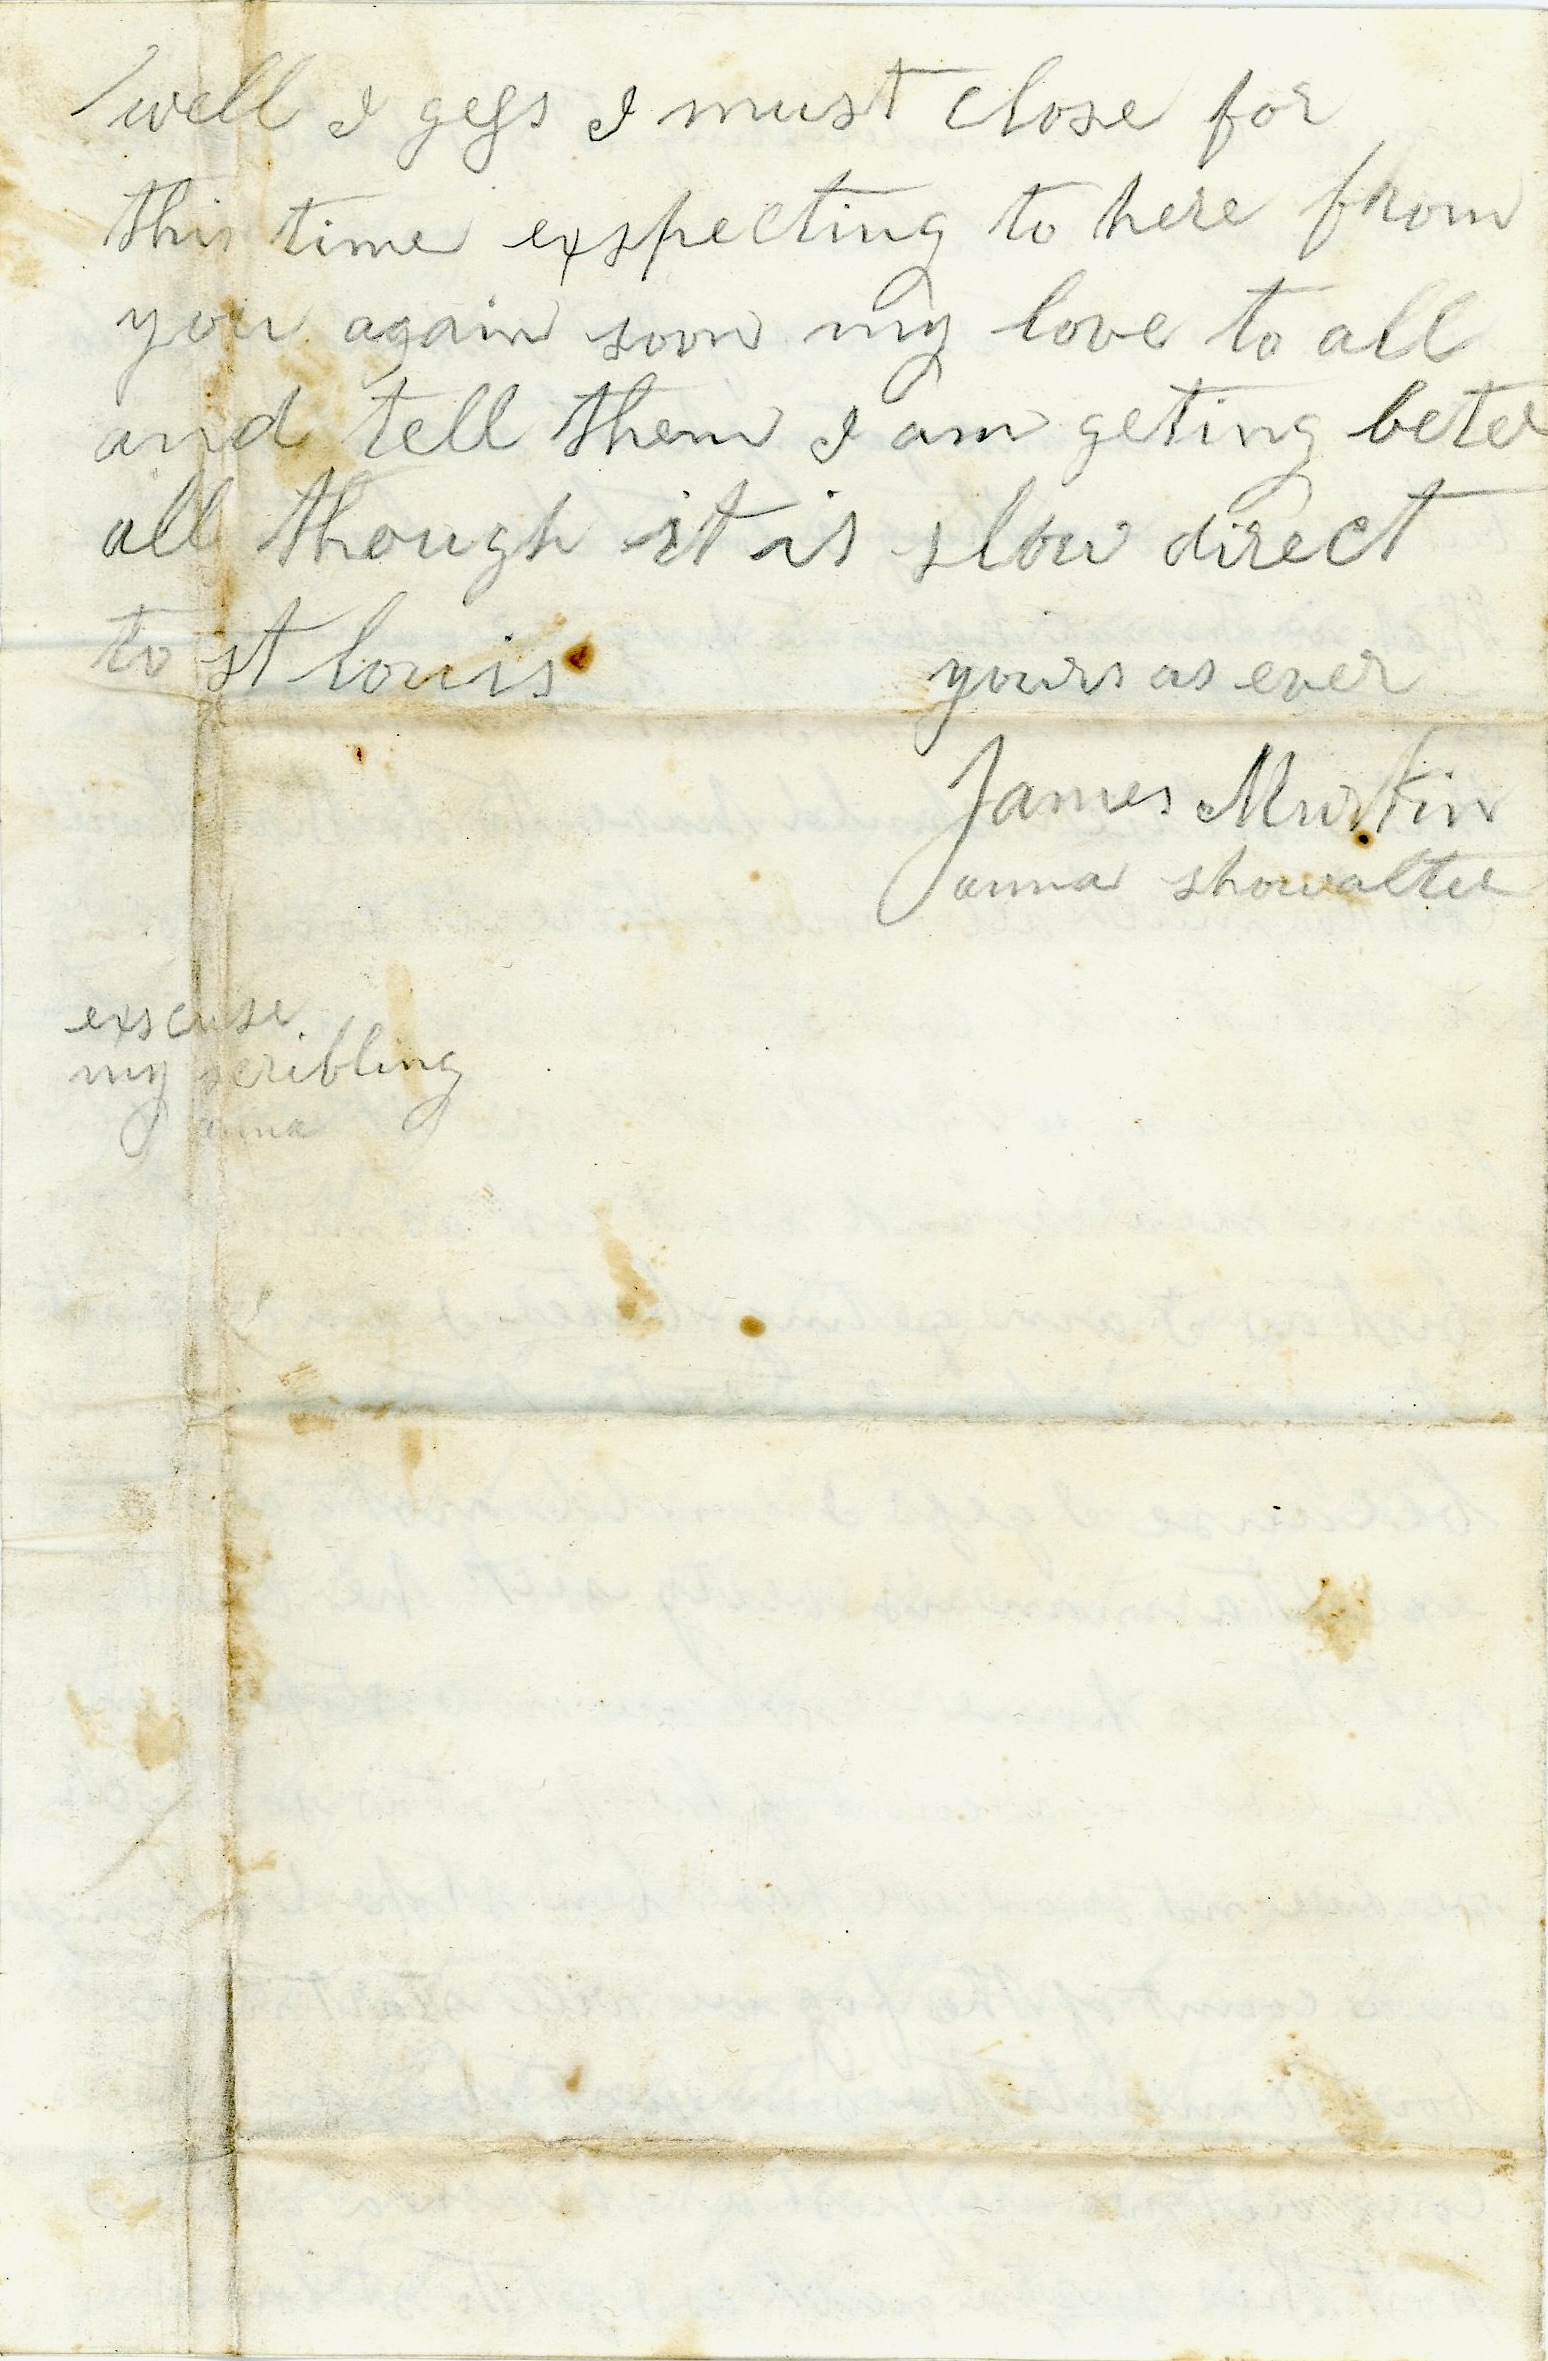 well I gess I must close for
this time exspecting to here from
you again soon my love to all
and tell them I am geting beter
all though it is slow direct
to st louis
yours as ever
James Martin
anna showalter
exscuse
my scribling
anna